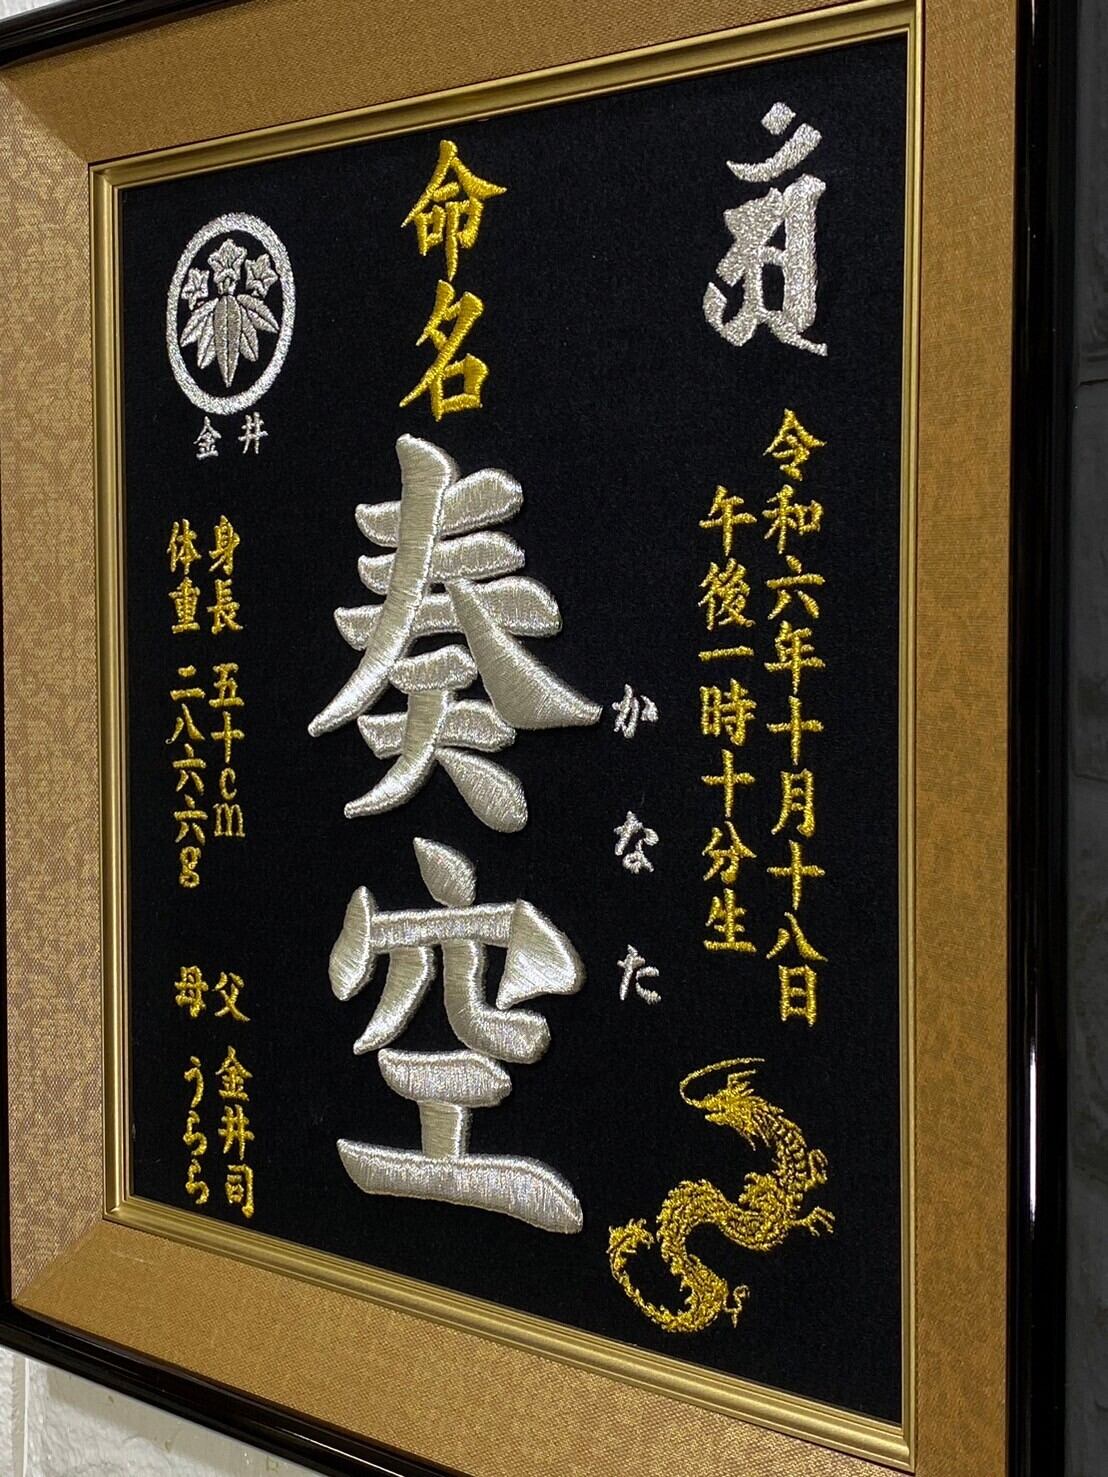 令和六年十月十八日
午後一時十分生
命名
奏空
かなた
金井
身長 五十cm
体重 二八六六g
父 金井司
母 うらら